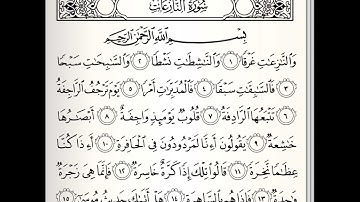 سُورَةُ النَّازِعَاتِ
بِسْمِ اللَّهِ الرَّحْمَٰنِ الرَّحِيمِ
وَالنَّٰزِعَٰتِ غَرْقًا ١ وَالنَّٰشِطَٰتِ نَشْطًا ٢ وَالسَّٰبِحَٰتِ سَبْحًا
٣ فَالسَّٰبِقَٰتِ سَبْقًا ٤ فَالْمُدَبِّرَٰتِ أَمْرًا ٥ يَوْمَ تَرْجُفُ الرَّاجِفَةُ
٦ تَتْبَعُهَا الرَّادِفَةُ ٧ قُلُوبٌ يَوْمَئِذٍ وَاجِفَةٌ ٨ أَبْصَٰرُهَا
خَٰشِعَةٌ ٩ يَقُولُونَ أَءِنَّا لَمَرْدُودُونَ فِي الْحَافِرَةِ ١٠ أَءِذَا كُنَّا
عِظَٰمًا نَّخِرَةً ١١ قَالُوا تِلْكَ إِذًا كَرَّةٌ خَاسِرَةٌ ١٢ فَإِنَّمَا هِيَ زَجْرَةٌ
وَٰحِدَةٌ ١٣ فَإِذَا هُم بِالسَّاهِرَةِ ١٤ هَلْ أَتَىٰكَ حَدِيثُ مُوسَىٰ ١٥